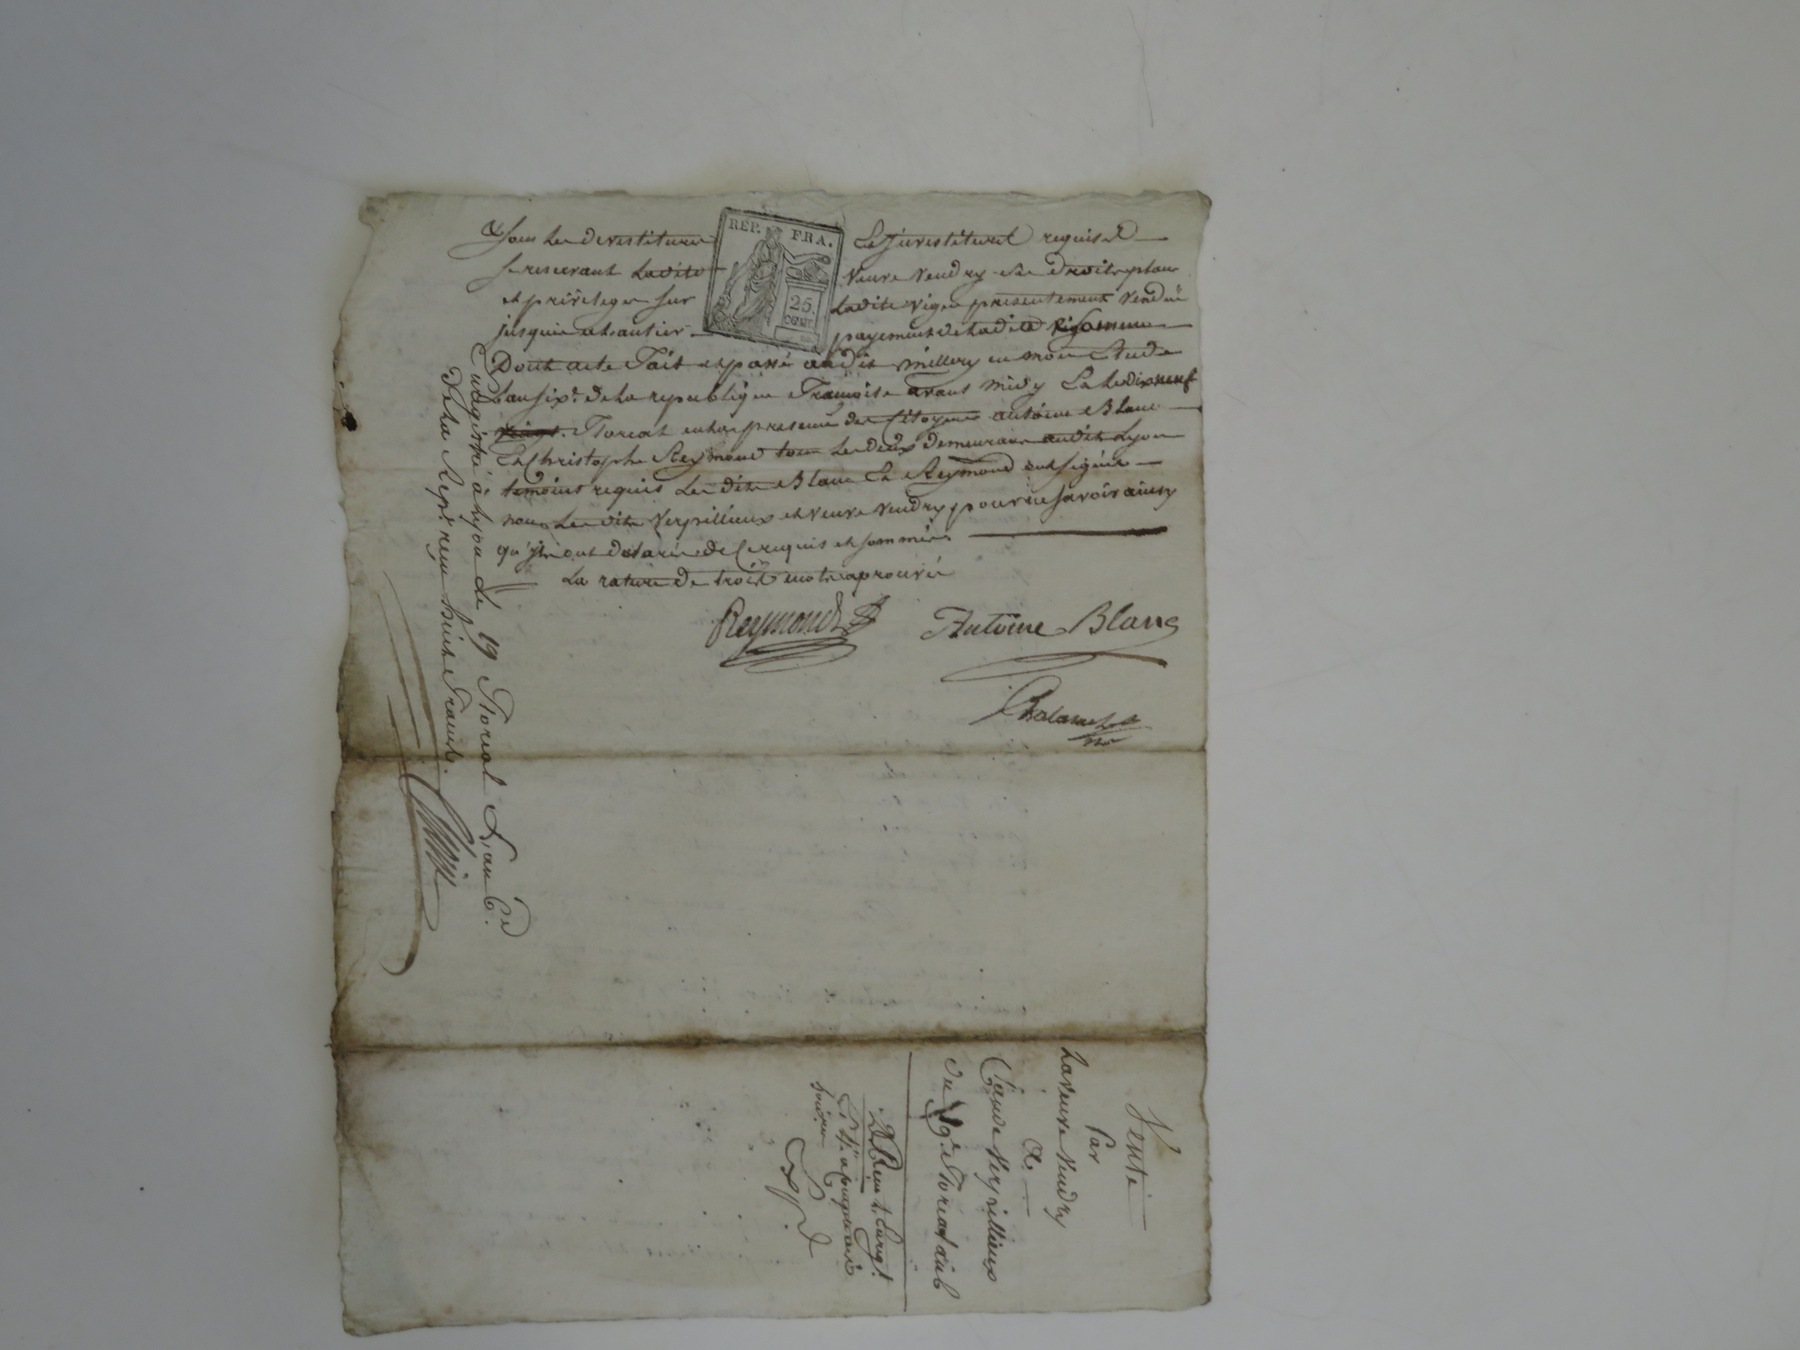 Sous les devestitures et Investitures requises
se reservant ladite veuve vendry ses droits
et privileges sur ladite vigne presentement venduë
jusqu'au payement de ladite somme
Dont acte Fait et passé audit millery en mon Etude
L'an six.e de la republique Françoise avant midy Le dixneuf
floreal en la presence des Citoyens antoine Blanc
Et Christophe Reymond tous les deux demeurans audit Lyon
temoins requis Les dits Blanc Et Reymond ont signés
non Les dits Verpillieux et veuve vendry pour ne savoir ainsy
qu'ils ont declaré de Ce requis et sommés.
La rature de trois mots aprouvée
REP. FRA.
25.
CENT.
Reymond
Antoine Blanc
Enregistré à Lyon le 19 floreal L'an 6e
de la Rep.e reçu huit francs.
Vente
Par
La veuve vendry
à
Claude Verpillieux
du 19e floreal an 6